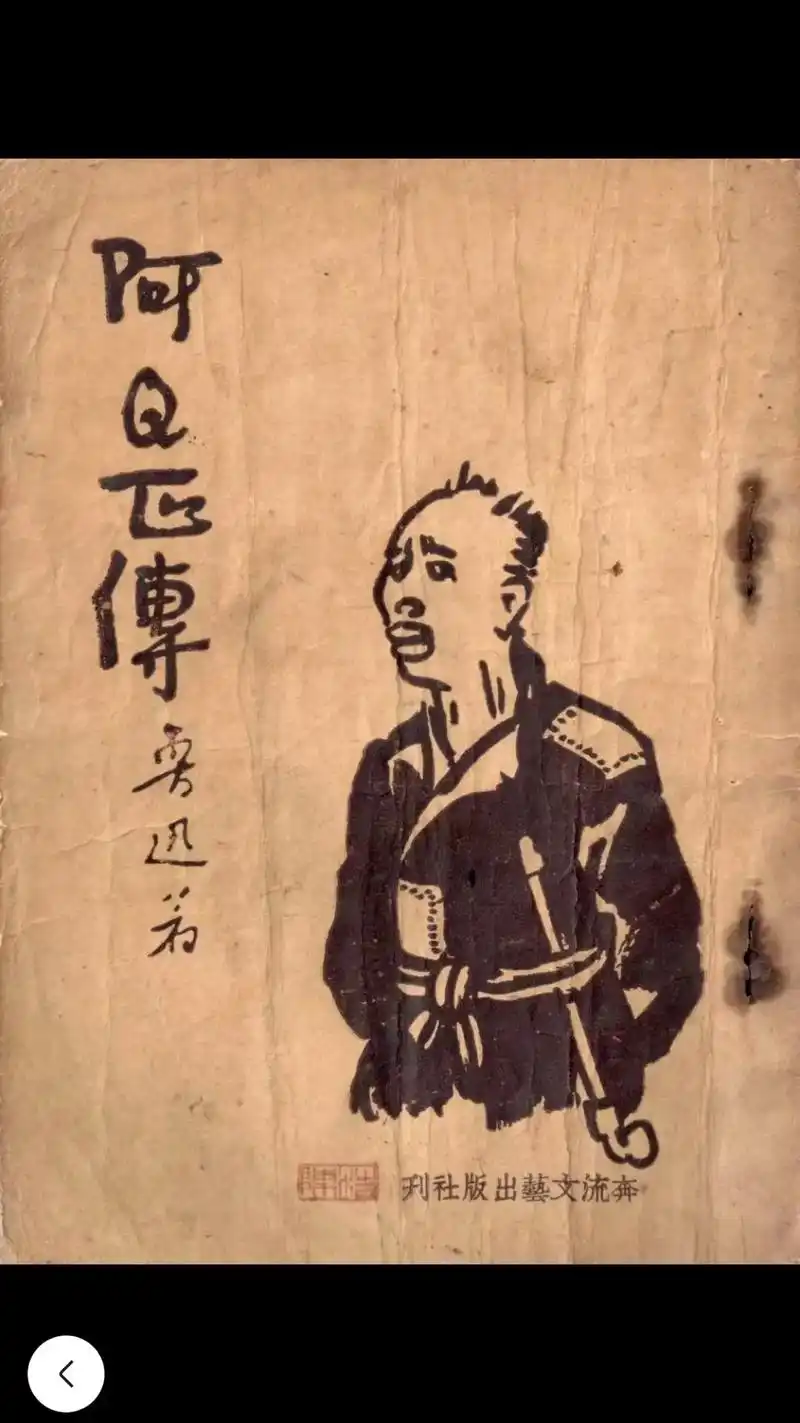 阿Q正傳
魯迅著
奔流文藝出版社刊